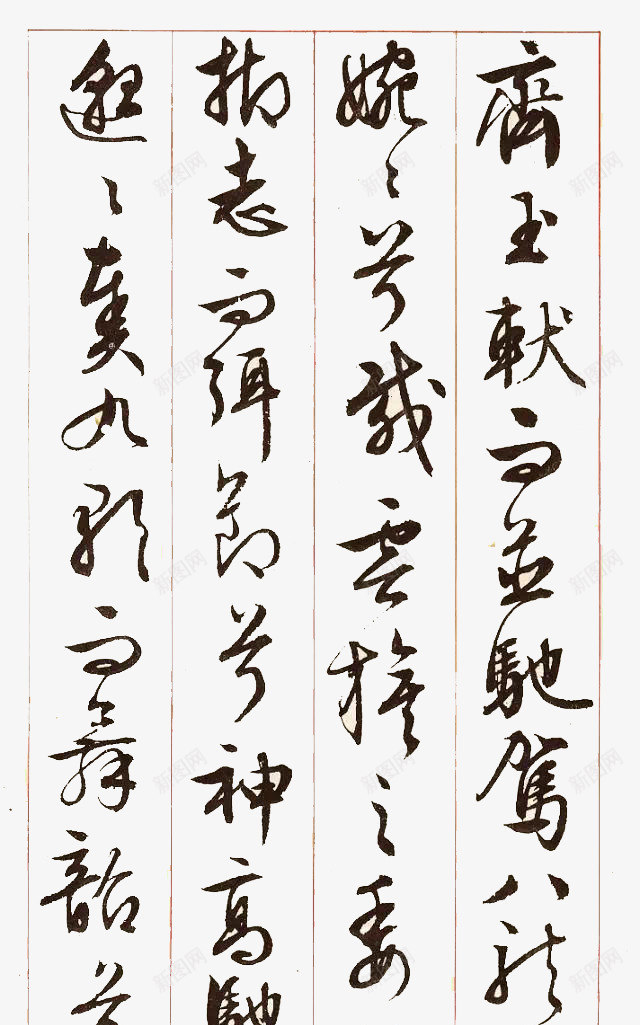 齊玉軑而並馳駕八龍
婉〻兮載雲旗之委
抑志而弭節兮神高馳
邈〻奏九歌而舞韶兮
新图网